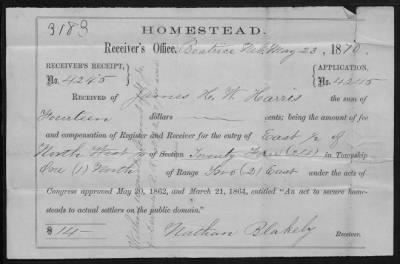 3183
HOMESTEAD.
Receiver's Office, Beatrice Neb. May 23, 1870.
RECEIVER'S RECEIPT, No. 4245
APPLICATION, No. 4245
RECEIVED OF James H. W. Harris the sum of
Fourteen dollars cents; being the amount of fee
and compensation of Register and Receiver for the entry of East ½ of
North West ¼ of Section Twenty Four (24) in Township
One (1) North of Range Two (2) East under the acts of
Congress approved May 20, 1862, and March 21, 1864, entitled "An act to secure home-
steads to actual settlers on the public domain."
$ 14— Nathan Blakely
Receiver.